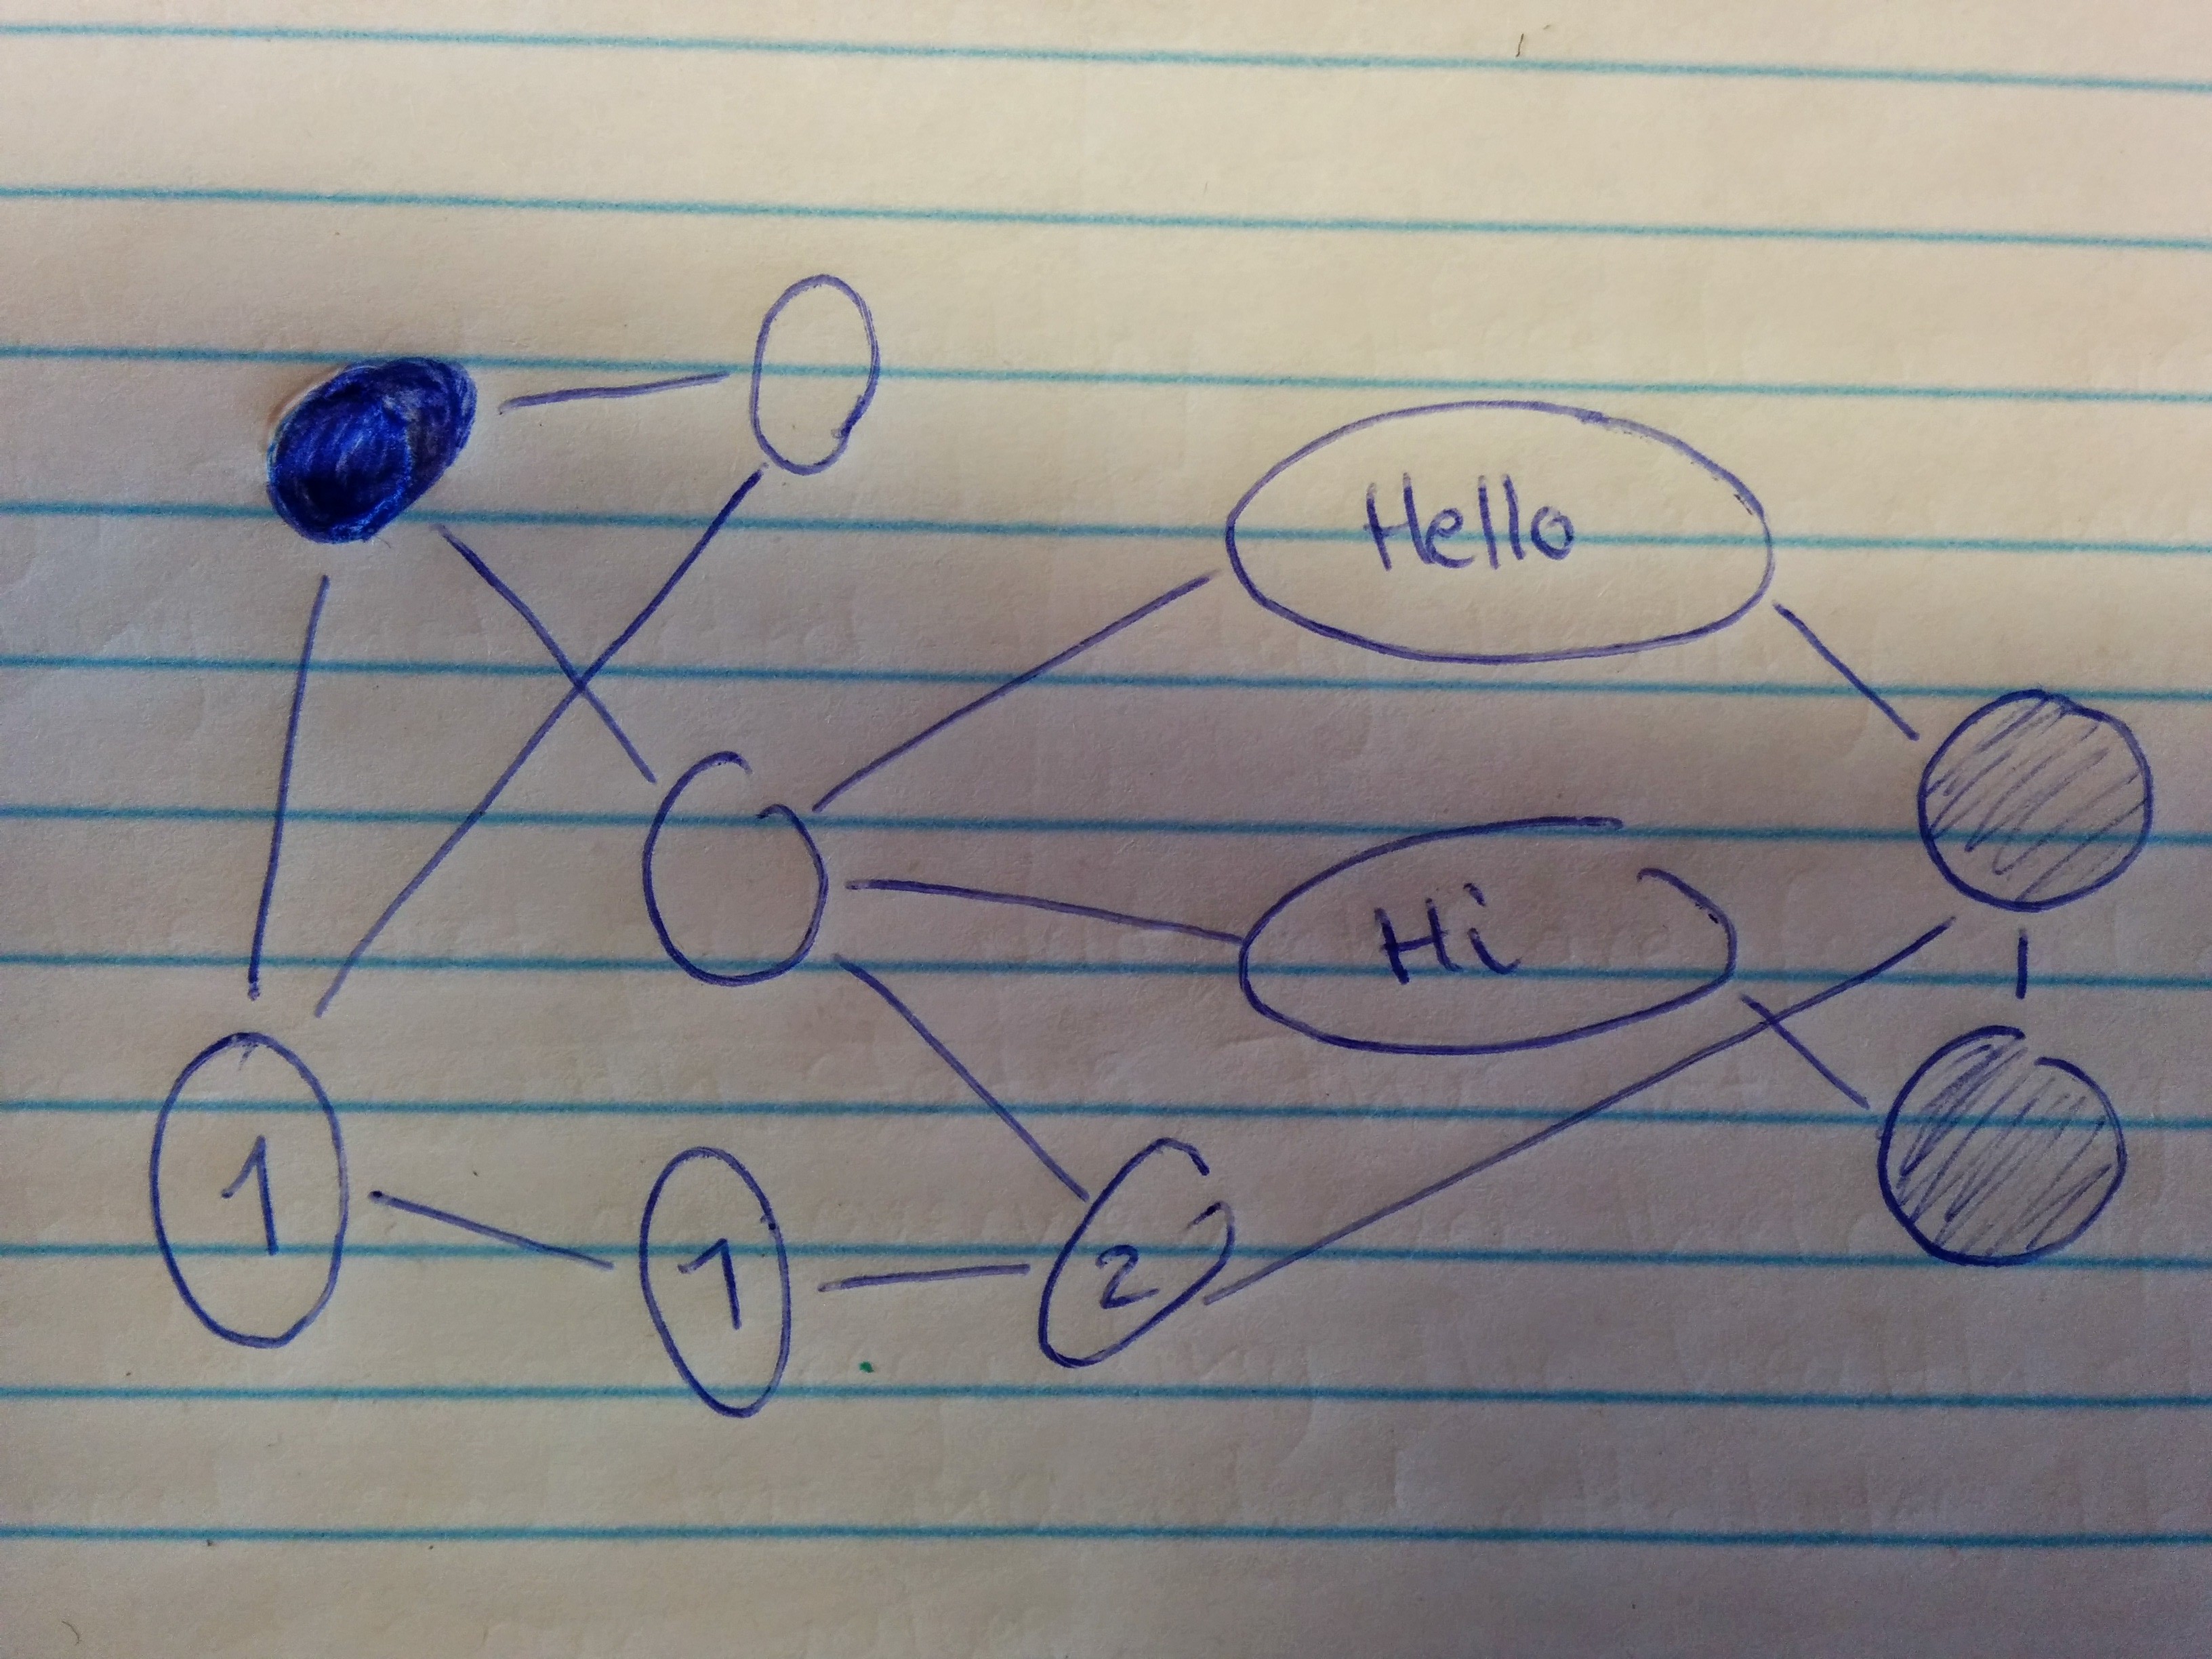 Hello
Hi
1
1
2